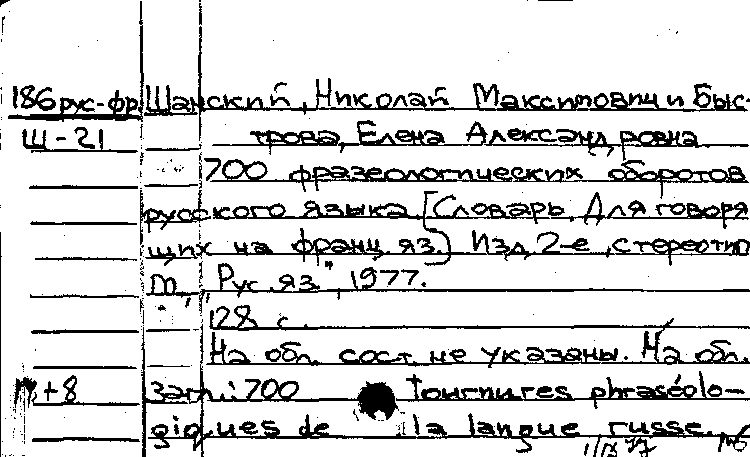 186 рус-фр. Шанский, Николай Максимович и Быс-
Ш-21 трова, Елена Александровна.
700 фразеологических оборотов
русского языка. [Словарь. Для говоря
щих на франц. яз.] Изд. 2-е, стереотип
М., „Рус. яз.", 1977.
128 с.
На обл. сост. не указаны. На обл.
+8 загл.: 700 tournures phraséolo-
giques de la langue russe.